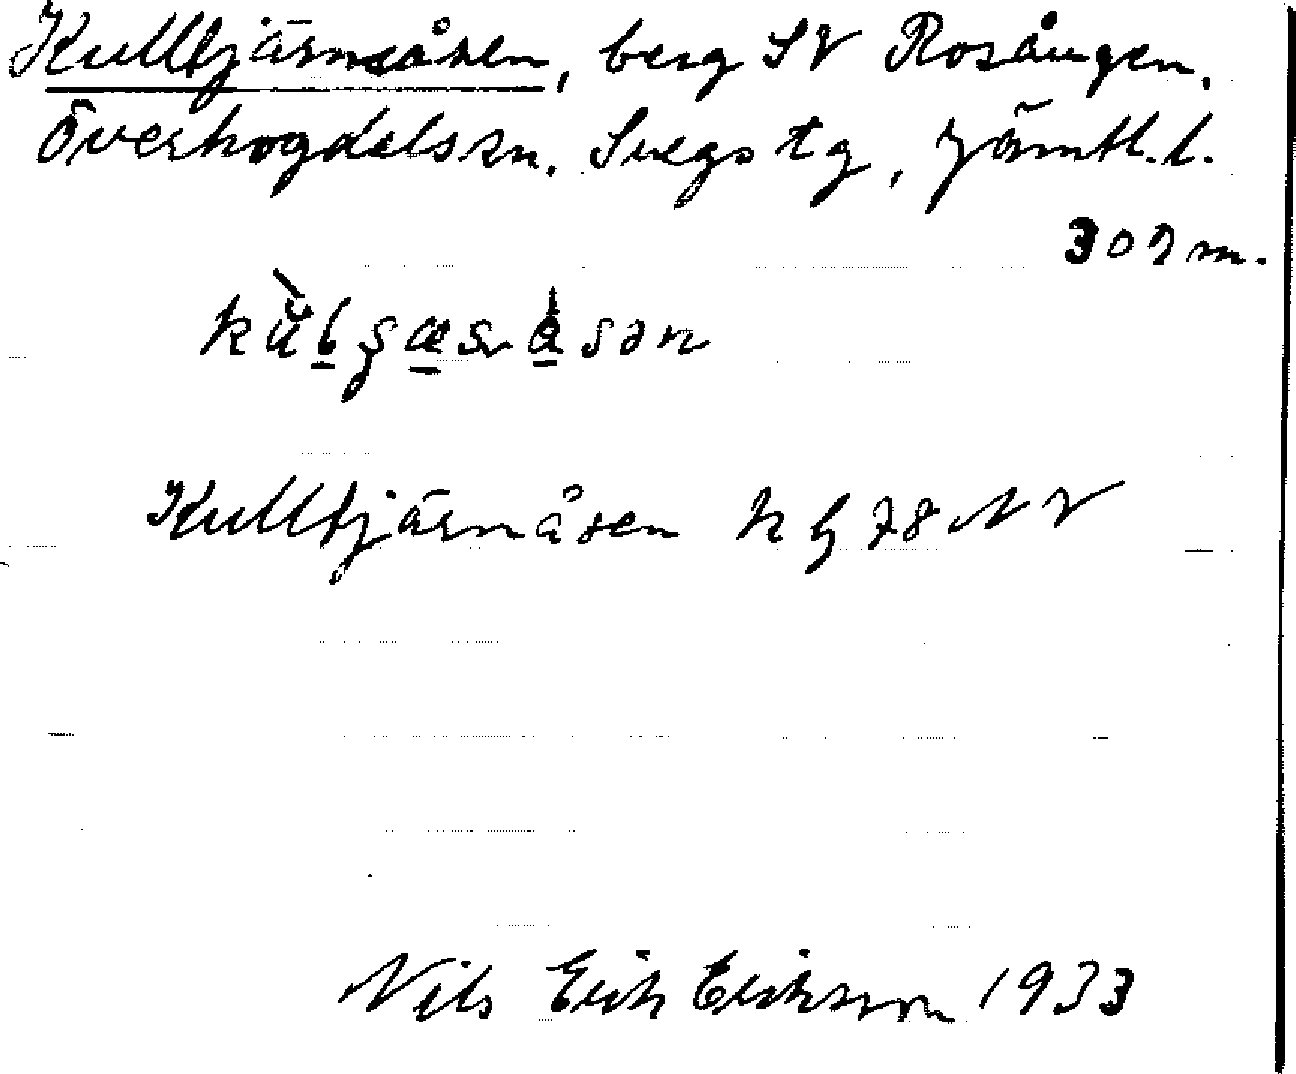 Kulltjärnsåsen, berg SV Rosången,
Överhogdals sn. Svegs tg, Jämtl. l.
307 m.
Kulltjärnåsen k bl 78 NV
Nils Erik Eriksson 1933